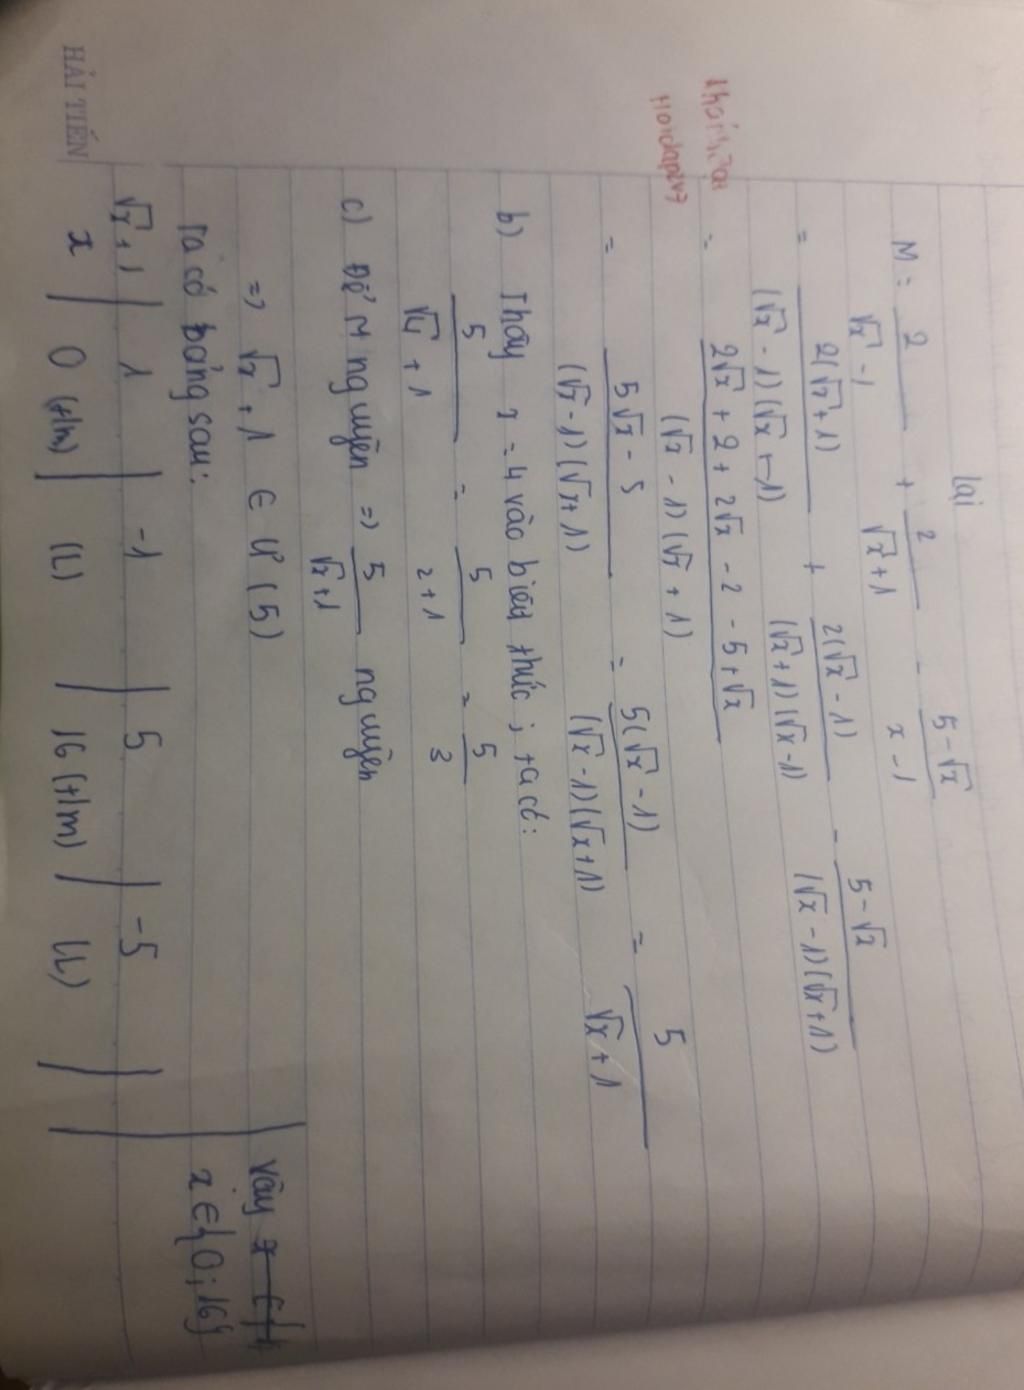 lại
M = 2/(√x - 1) + 2/(√x + 1) - (5 - √x)/(x - 1)
= 2(√x + 1)/((√x - 1)(√x - 1)) + 2(√x - 1)/((√x + 1)(√x - 1)) - (5 - √x)/((√x - 1)(√x + 1))
= (2√x + 2 + 2√x - 2 - 5 + √x)/((√x - 1)(√x + 1))
Hoidap247
= (5√x - 5)/((√x - 1)(√x + 1)) = 5(√x - 1)/((√x - 1)(√x + 1)) = 5/(√x + 1)
b) Thay x = 4 vào biểu thức ; ta có:
5/(√4 + 1) = 5/(2 + 1) = 5/3
c) Để M nguyên => 5/(√x + 1) nguyên
=> √x + 1 ∈ Ư (5)
Ta có bảng sau:
√x + 1 | 1 | -1 | 5 | -5 |
x | 0 (t/m) | (L) | 16 (t/m) | (L) |
Vậy
x ∈ {0; 16}
HẢI TIẾN